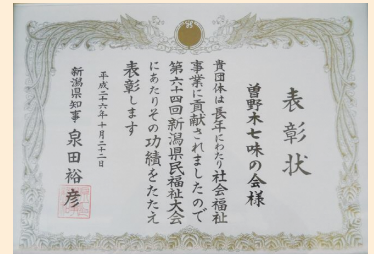 表彰状
曽野木七味の会様
貴団体は長年にわたり社会福祉
事業に貢献されましたので
第六十四回新潟県民福祉大会
にあたりその功績をたたえ
表彰します
平成二十六年十月二十二日
新潟県知事 泉田裕彦